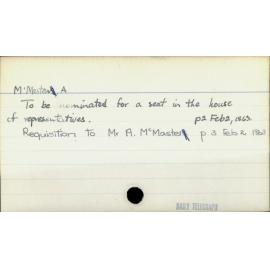 McMaster, A
To be nominated for a seat in the house
of representatives. p2 Feb 2, 1863
Requisition to Mr A. McMaster p. 3 Feb 2 1863
DAILY TELEGRAPH